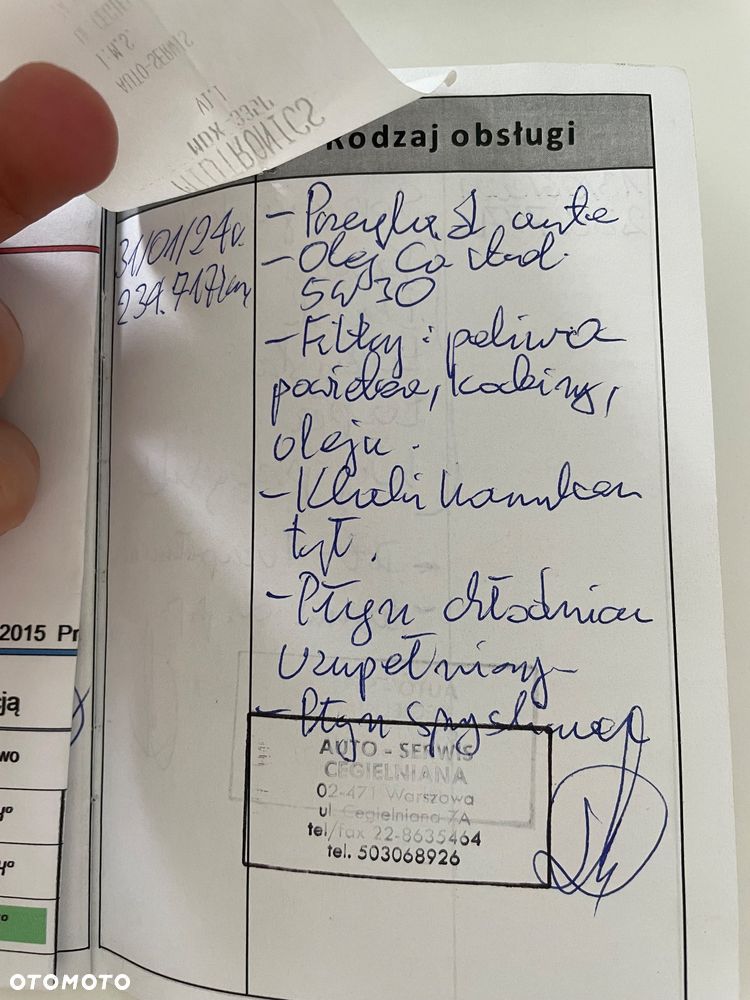 Rodzaj obsługi
31/01/24r.
- Przegląd auta
- Olej Castrol
5W30
- Filtry : paliwa
powietrza, kabiny,
oleju.
- Klocki hamulcowe
tył.
- Płyn chłodnicz
uzupełniony
- Płyn spryskiwaczy
AUTO - SERWIS
CEGIELNIANA
02-471 Warszawa
ul Cegielniana 7A
tel/fax 22-8635464
tel. 503068926
2015 Pr
ją
wo
OTOMOTO